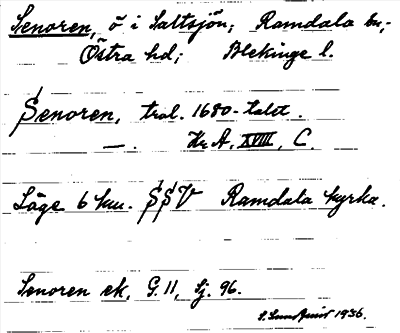 Senoren, ö i Saltsjön; Ramdala sn;
Östra hd; Blekinge l.
Senoren, tral. 1680-talet.
—. Kr. A. XVIII, C.
Läge 6 km. SSV Ramdala kyrka.
Senoren ek, G. 11, Sj. 96.
S. Sundquist 1936.